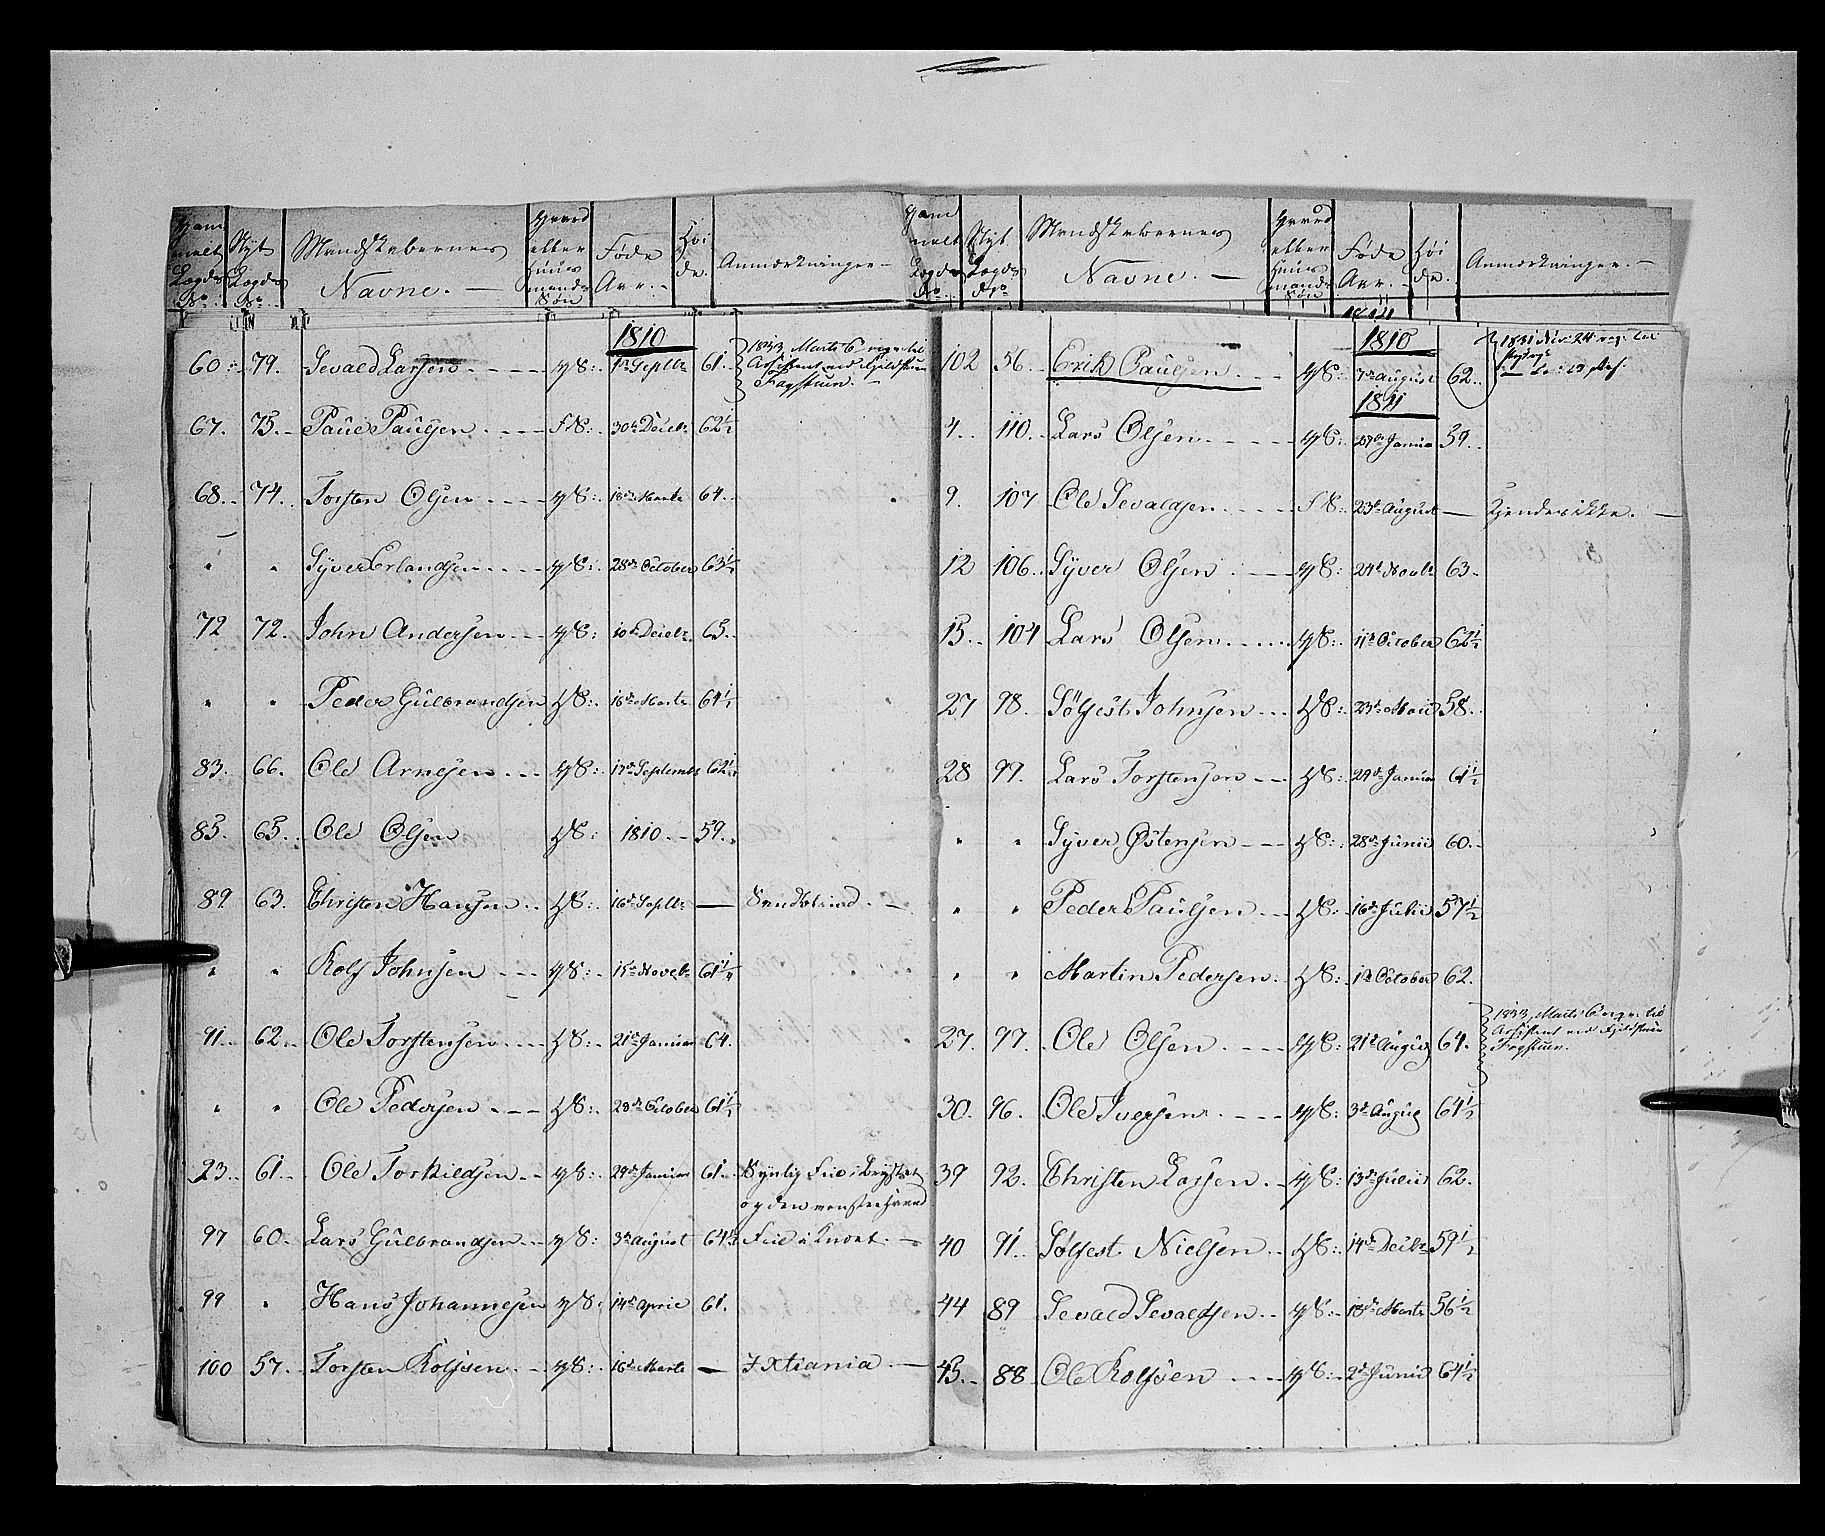 Gam
melt
Lægds
No
Nyt
Lægds
No
Mandskabernes
Navne. —
Gaard
eller
Huus
mands
Søn
Føde
Aar. —
Høi
de.
Anmærkninger —
1810
60 79. Sevald Larsen G S: 1ste Septbr 61. 1833 Marts 6 reg. til
Assistent ved Fjeldstuen
Fogstuen. —
67. 75. Paul Paulsen S: 30te Decbr 62½
68. 74. Torsten Olsen G S: 18de Marts 64.
" " Syver Erlandsen G S: 28de October 63½
72 72. John Andersen G S: 10de Decbr 65.
" " Peder Gulbrandsen H S: 16de Marts 64½
83. 66. Ole Arnesen G S: 17de Septembr 62½
85. 65. Ole Olsen H S: 1810 59.
89 63. Christen Hansen H S: 16de Septbr —
" " Rolf Johnsen G S: 15de Novbr 61½
91. 62. Ole Torstensen H S: 21de Januar 64.
" " Ole Pedersen H S: 28de October 61½
23. 61. Ole Torkildsen G S: 29de Januar 61. Synlig Feil i Brystet
og den venstre Haand
97 60. Lars Gulbrandsen G S: 3de August 64½ Feil i Knæet. —
99 " Hans Johannesen G S. 14de April 61.
100 57. Torsten Rolfsen G S: 16de Marts — I Xtiania. —
Gam
melt
Lægds
No
Nyt
Lægds
No
Mandskabernes
Navne. —
Gaard
eller
Huus
mands
Søn
Føde
Aar. —
Høi
de.
Anmærkninger. —
1810
102 56. Erik Paulsen G S: 7de August 62. 1831 Nov: 24 reg. til
1811
4. 110. Lars Olsen G S: 27de Januar 59.
9. 107 Ole Sevaldsen S: 23de August — Kjendes ikke. —
12 106. Syver Olsen G S: 24de Novbr 63.
15. 104 Lars Olsen G S: 11te October 62½
27 98. Sølfest Johnsen H S: 23de Maii 58.
28 99. Lars Torstensen H S: 29de Januar 61½
" " Syver Østensen H S: 28de Junii 60.
" " Peder Paulsen H S: 16de Julii 57½
" " Martin Pedersen. H S: 1ste October 62.
27. 97. Ole Olsen G S: 21de August 64. 1833 Marts 6 reg. til
Assistent ved Fjeldstuen
Fogstuen.
30. 96. Ole Iversen G S: 3de August 64½
39 92. Christen Larsen G S: 13de Julii 62.
40 91. Sølfest Nielsen H S: 14de Decbr 59½
44 89 Sevald Sevaldsen G S: 18de Marts 56½
45. 88 Ole Rolfsen G S: 2den Junii 64½